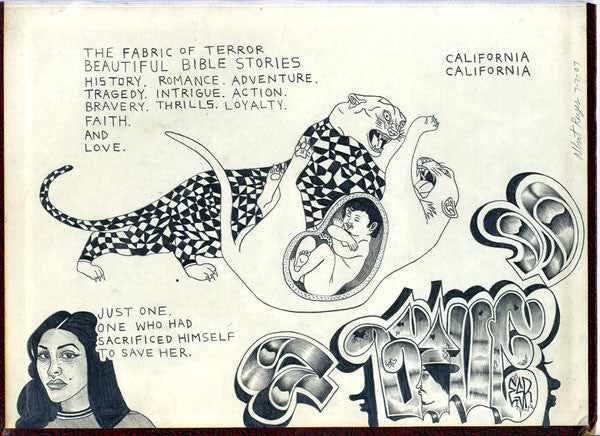 THE FABRIC OF TERROR
BEAUTIFUL BIBLE STORIES
HISTORY. ROMANCE. ADVENTURE.
TRAGEDY. INTRIGUE. ACTION.
BRAVERY. THRILLS. LOYALTY.
FAITH.
AND
LOVE.
CALIFORNIA
CALIFORNIA
Albert Reyes 7-7-07
JUST ONE.
ONE WHO HAD
SACRIFICED HIMSELF
TO SAVE HER.